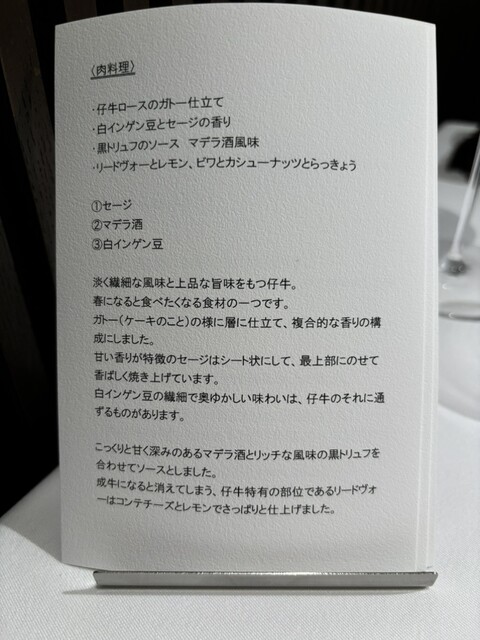 〈肉料理〉
・仔牛ロースのガトー仕立て
・白インゲン豆とセージの香り
・黒トリュフのソース　マデラ酒風味
・リードヴォーとレモン、ビワとカシューナッツとらっきょう
①セージ
②マデラ酒
③白インゲン豆
淡く繊細な風味と上品な旨味をもつ仔牛。
春になると食べたくなる食材の一つです。
ガトー（ケーキのこと）の様に層に仕立て、複合的な香りの構
成にしました。
甘い香りが特徴のセージはシート状にして、最上部にのせて
香ばしく焼き上げています。
白インゲン豆の繊細で奥ゆかしい味わいは、仔牛のそれに通
ずるものがあります。
こっくりと甘く深みのあるマデラ酒とリッチな風味の黒トリュフを
合わせてソースとしました。
成牛になると消えてしまう、仔牛特有の部位であるリードヴォ
ーはコンテチーズとレモンでさっぱりと仕上げました。